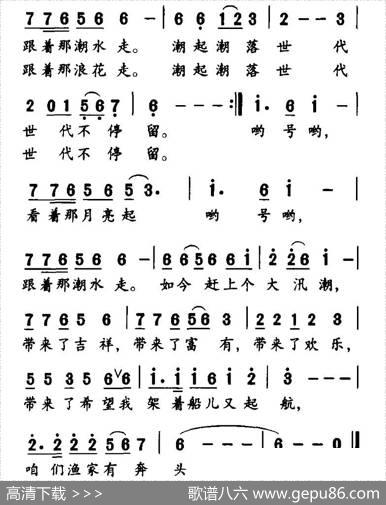 7 7 6 5 6 5 6 — | 6 6 1 2 3 | 2 — — 3
跟着那潮水 走。 潮起潮 落 世 代
跟着那浪花 走。 潮起潮 落 世 代
2 0 1 5 6 7 | 6 — — :‖ i. 6 i —
世 代不停 留。 哟 号 哟,
世 代不停 留。
7 7 6 5 6 5 5 3. | i. 6 i — |
看着那月亮起 哟 号 哟,
7 7 6 5 6 5 6 — | 6 6 5 6 5 6 6 i | 2 2 6 i — |
跟着那潮水 走。 如今 赶上个 大 汛 潮,
7 7 6 5 3 5 | 7 7 7 5 6 3 | 2 2 1 2 2 3 |
带来了吉祥, 带来了富 有, 带来了欢 乐,
5 5 3 5 3 6 ∨ 6 | i. i i 6 i 2 | 3 — — — |
带来了希望我 架着船儿又起 航,
2. 2 2 2 5 6 7 | 6 — — — | 6 — — 0 ‖
咱 们渔家有 奔 头
高清下载 >>>
歌谱八六 www.gepu86.com